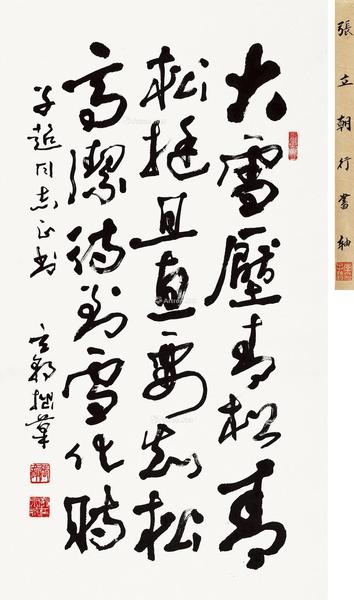 大雪壓青松青
松挺且直要知松
高潔待到雪化時
同志正
立朝拙
張立朝行書軸